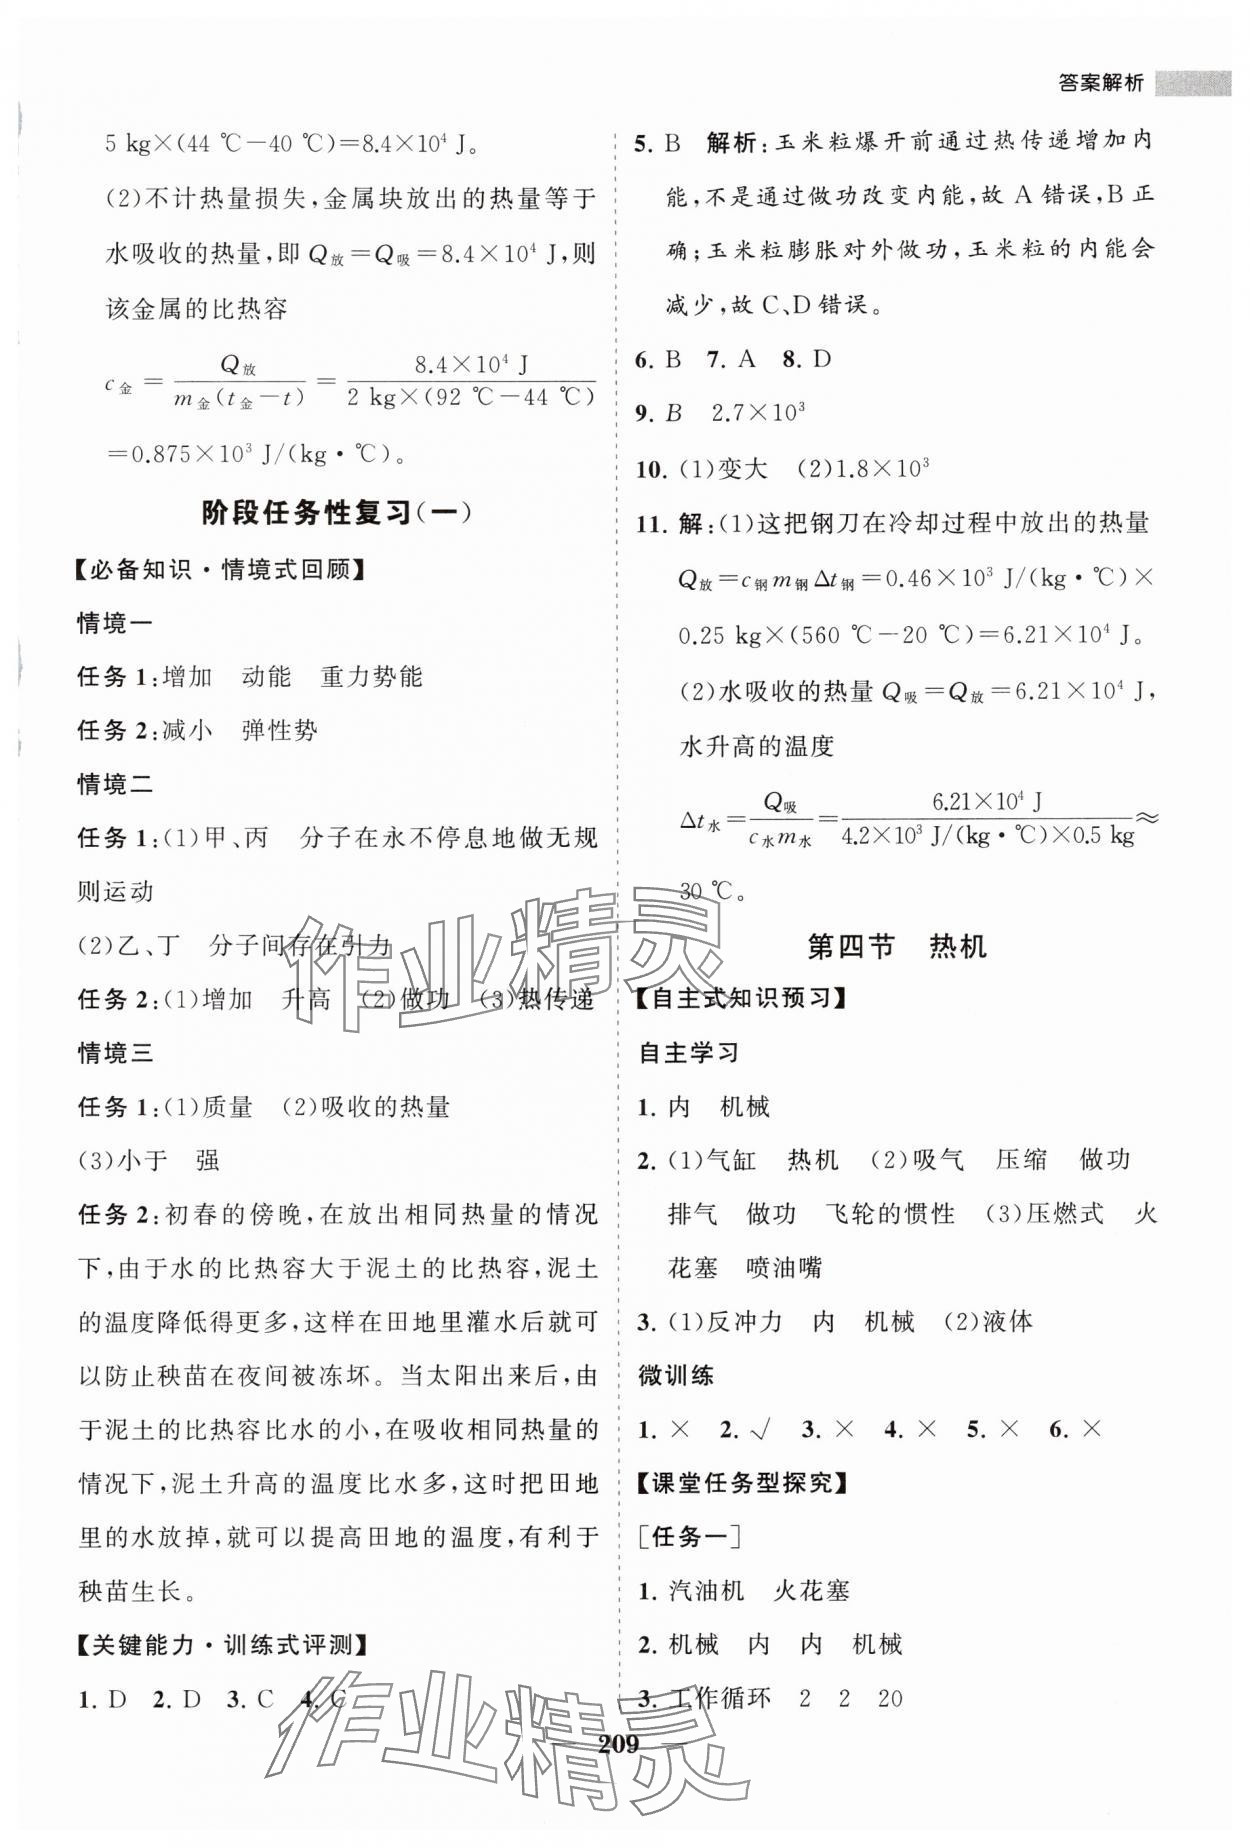 答案解析
5 kg×(44 ℃－40 ℃)=8.4×10⁴ J。
(2)不计热量损失,金属块放出的热量等于
水吸收的热量,即 Q放=Q吸=8.4×10⁴ J,则
该金属的比热容
c金 = Q放/m金(t金－t) = 8.4×10⁴ J/2 kg×(92 ℃－44 ℃)
=0.875×10³ J/(kg·℃)。
阶段任务性复习(一)
【必备知识·情境式回顾】
情境一
任务 1:增加 动能 重力势能
任务 2:减小 弹性势
情境二
任务 1:(1)甲、丙 分子在永不停息地做无规
则运动
(2)乙、丁 分子间存在引力
任务 2:(1)增加 升高 (2)做功 (3)热传递
情境三
任务 1:(1)质量 (2)吸收的热量
(3)小于 强
任务 2:初春的傍晚,在放出相同热量的情况
下,由于水的比热容大于泥土的比热容,泥土
的温度降低得更多,这样在田地里灌水后就可
以防止秧苗在夜间被冻坏。当太阳出来后,由
于泥土的比热容比水的小,在吸收相同热量的
情况下,泥土升高的温度比水多,这时把田地
里的水放掉,就可以提高田地的温度,有利于
秧苗生长。
【关键能力·训练式评测】
1. D 2. D 3. C 4. C
5. B 解析:玉米粒爆开前通过热传递增加内
能,不是通过做功改变内能,故 A 错误,B 正
确;玉米粒膨胀对外做功,玉米粒的内能会
减少,故 C、D 错误。
6. B 7. A 8. D
9. B 2.7×10³
10. (1)变大 (2)1.8×10³
11. 解:(1)这把钢刀在冷却过程中放出的热量
Q放=c钢m钢Δt钢=0.46×10³ J/(kg·℃)×
0.25 kg×(560 ℃－20 ℃)=6.21×10⁴ J。
(2)水吸收的热量 Q吸=Q放=6.21×10⁴ J,
水升高的温度
Δt水=Q吸/c水m水=6.21×10⁴ J/4.2×10³ J/(kg·℃)×0.5 kg≈
30 ℃。
第四节 热机
【自主式知识预习】
自主学习
1. 内 机械
2. (1)气缸 热机 (2)吸气 压缩 做功
排气 做功 飞轮的惯性 (3)压燃式 火
花塞 喷油嘴
3. (1)反冲力 内 机械 (2)液体
微训练
1. × 2. √ 3. × 4. × 5. × 6. ×
【课堂任务型探究】
[任务一]
1. 汽油机 火花塞
2. 机械 内 内 机械
3. 工作循环 2 2 20
209
作业精灵
作业精灵